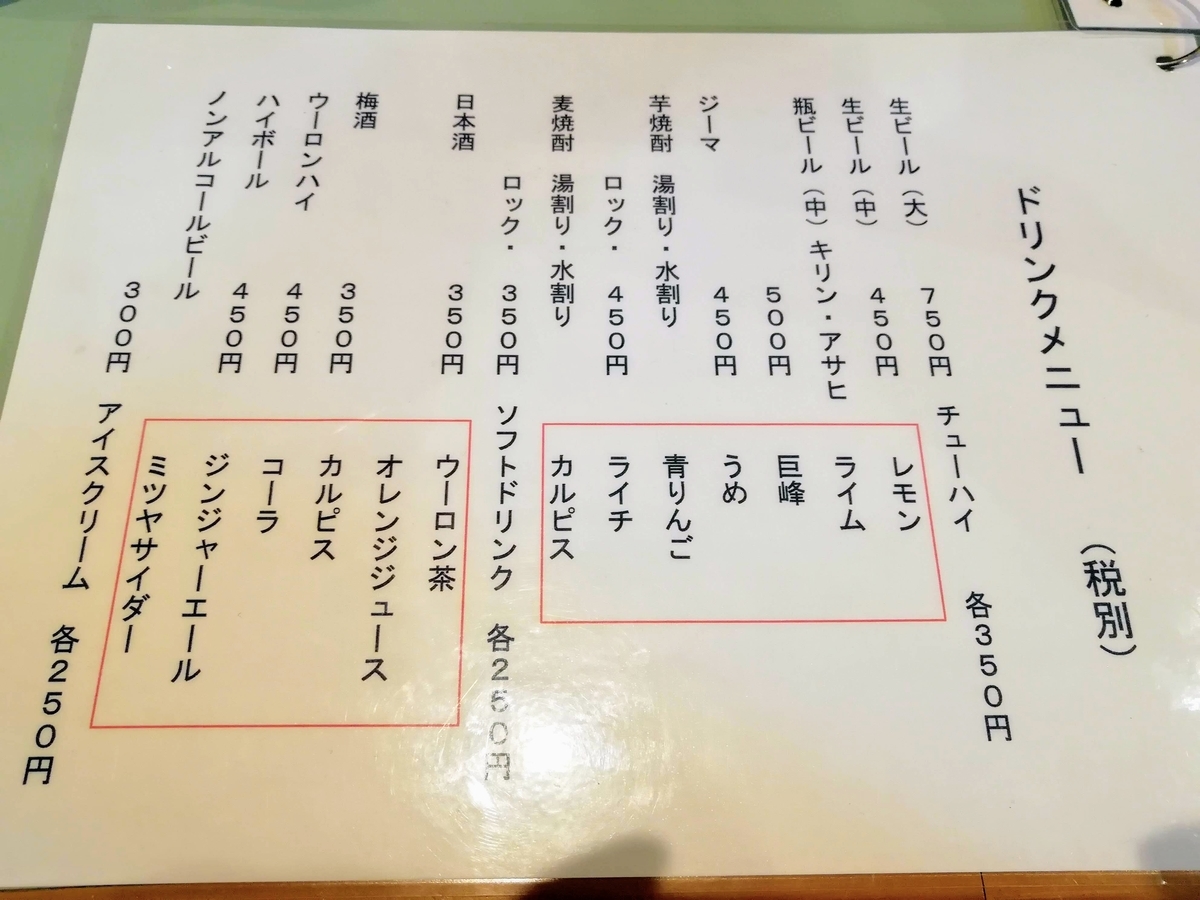 ドリンクメニュー (税別)
生ビール(大) 750円
生ビール(中) 450円
瓶ビール(中)キリン・アサヒ
500円
ジーマ 450円
芋焼酎 湯割り・水割り
ロック・ 450円
麦焼酎 湯割り・水割り
ロック・ 350円
日本酒 350円
梅酒 350円
ウーロンハイ 450円
ハイボール 450円
ノンアルコールビール
300円
チューハイ 各350円
レモン
ライム
巨峰
うめ
青りんご
ライチ
カルピス
ソフトドリンク 各250円
ウーロン茶
オレンジジュース
カルピス
コーラ
ジンジャーエール
ミツヤサイダー
アイスクリーム 各250円